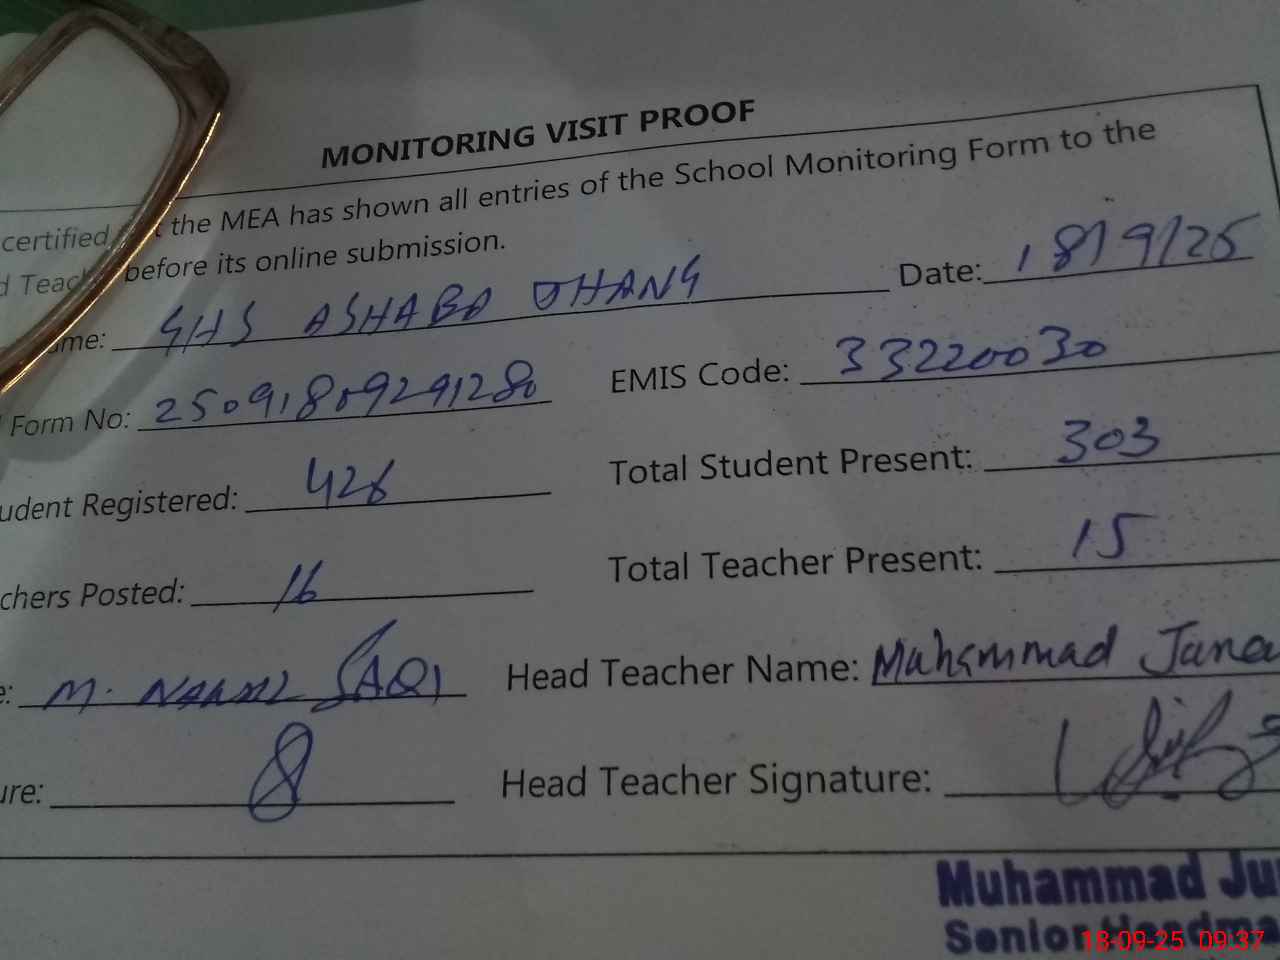 MONITORING VISIT PROOF
certified the MEA has shown all entries of the School Monitoring Form to the
d Teac before its online submission.
ame: GHS ASHABA DHANG Date: 18/9/25
Form No: 25091809291280 EMIS Code: 33220030
udent Registered: 426 Total Student Present: 303
chers Posted: 16 Total Teacher Present: 15
e: M. SAQI Head Teacher Name: Muhammad Juna
ure: Head Teacher Signature:
Muhammad Ju
Senior Headma
18-09-25 09:37